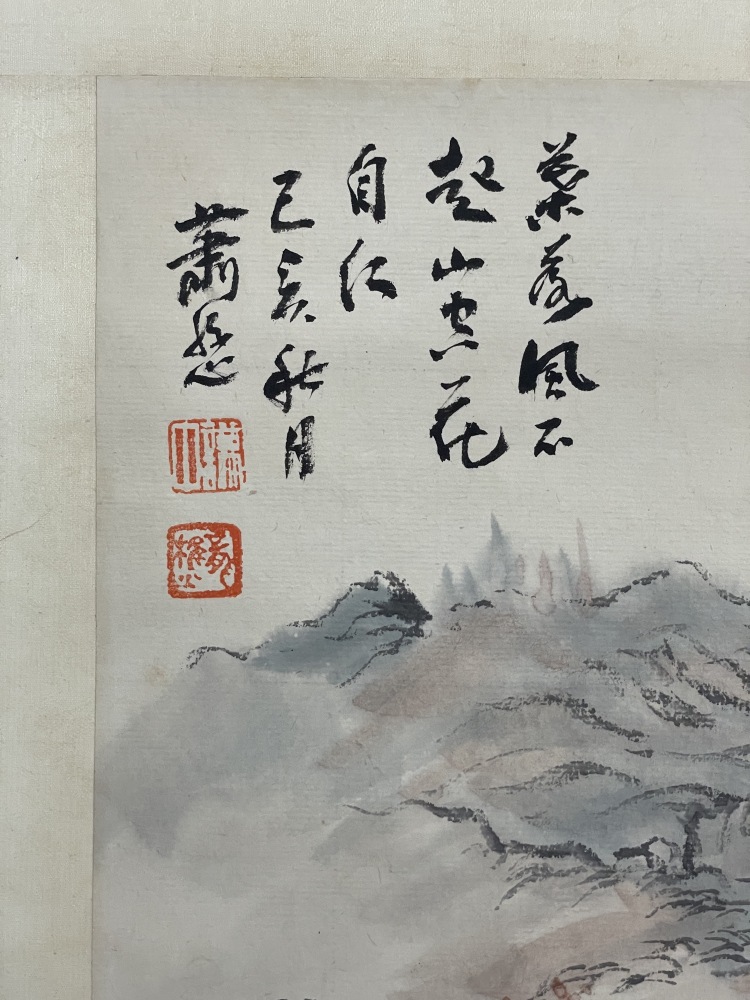 葉落風不
起山空花
自红
己亥秋月
蕭愻